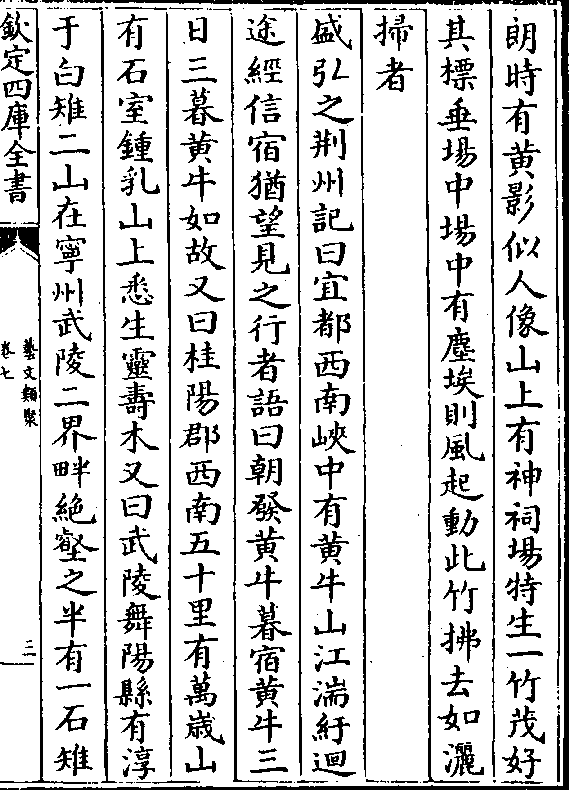 朗時有黄影似人像山上有神祠場特生一竹茂好
其標垂場中場中有塵埃則風起動此竹拂去如灑
掃者
盛弘之荆州記曰宜都西南峽中有黄牛山江湍紆迴
途經信宿猶望見之行者語曰朝發黄牛暮宿黄牛三
日三暮黄牛如故又曰桂陽郡西南五十里有萬歳山
有石室鍾乳山上悉生靈壽木又曰武陵舞陽縣有淳
于白雉二山在寧州武陵二界畔絶壑之半有一石雉
欽定四庫全書
藝文類聚
卷七
三